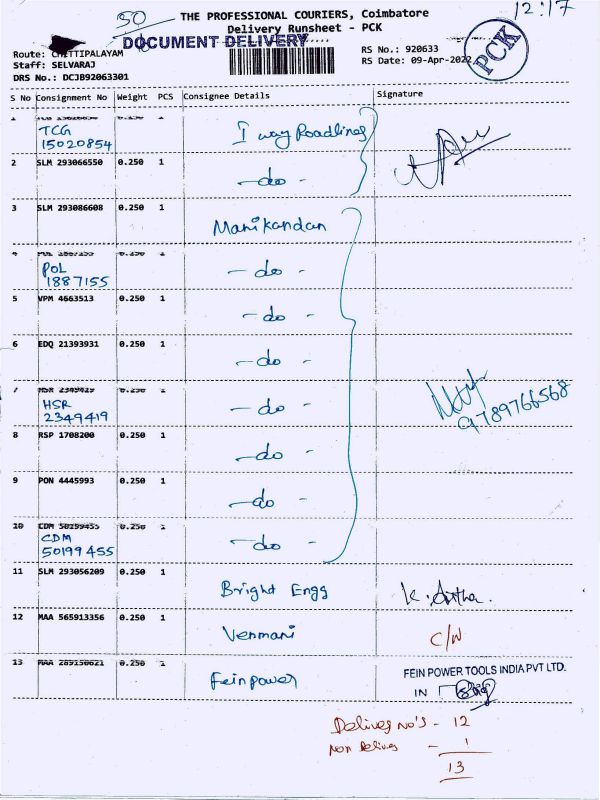 50 THE PROFESSIONAL COURIERS, Coimbatore 12:17
Delivery Runsheet - PCK
DOCUMENT DELIVERY
PCK
Route: CHETTIPALAYAM
Staff: SELVARAJ
DRS No.: DCJB92063301
RS No.: 920633
RS Date: 09-Apr-2022
S No Consignment No Weight PCS Consignee Details Signature
1
TCG
15020854 I way Roadlines
2 SLM 293066550 0.250 1 - do -
3 SLM 293086608 0.250 1 Manikandan
4 0.250 1
POL
1887155 - do -
5 VPM 4663513 0.250 1 - do -
6 EDQ 21393931 0.250 1 - do -
7 HSR 0.250 1
HSR
2349419 - do -
9789766568
8 RSP 1708200 0.250 1 - do -
9 PON 4445993 0.250 1 - do -
10 CDM 0.250 1
CDM
50199455 - do -
11 SLM 293056209 0.250 1 Bright Engg
12 MAA 565913356 0.250 1 Venmani C/N
13 MAA 289150621 0.250 1 Feinpower
FEIN POWER TOOLS INDIA PVT LTD.
IN
Delivery No's - 12
Non Delivery - 1
13